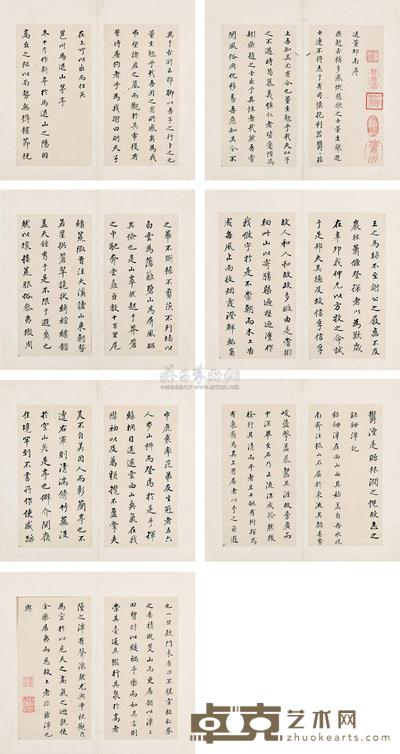 送董邵南序
燕趙古稱多感慨悲歌之士董生舉進
士連不得志于有司懷抱利器鬱鬱適
土吾知其必有合也董生勉乎哉夫以子
之不遇時苟慕義彊仁者皆愛惜焉
矧燕趙之士出乎其性者哉然吾嘗
聞風俗與化移易吾惡知其今不
異于古所云邪聊以吾子之行卜之也
董生勉乎哉吾因子有所感矣為我
弔望諸君之墓而觀於其市復有
昔時屠狗者乎為我謝曰明天子
在上可以出而仕矣
邕州馬退山茅亭
冬十月作新亭於馬退山之陽因
高丘之阻以面勢無欂櫨節梲
之華不斲椽不翦茨不列墻以
白雲為藩籬碧山為屏風昭
其儉也是山崒然起于莽蒼
之中馳奔雲矗亘數十百里尾
蟠荒陬首注大溪諸山來朝勢
若星拱蒼翠詭狀綺綰繡錯
蓋天鍾秀于是不限于遐裔也
然以壤接荒服俗參夷徼周
王之馬跡不至謝公之屐齒不及
巖徑蕭條登探者以為歎歲
在辛卯我仲兄以方牧之命試
于是邦夫其德及故信孚信孚
故人和人和故政多暇由是嘗徘
徊此山以寄勝概迺塈迺塗作
我攸宇于是不崇朝而木工告
成每風止雨收煙霞澄鮮輒角
巾鹿裘率昆弟友生冠者五六
人步山椒而登焉於是手揮
絲桐目送還雲西山爽氣在我
襟袖以及萬類攬不盈掌夫
美不自美因人而彰蘭亭也不
遭右軍則清湍脩竹蕪沒
於空山矣是亭也僻介閩嶺
佳境罕到不書所作使盛跡
鬱湮是貽林澗之愧故志之
鈷鉧潭記
鈷鉧潭在西山西其始蓋冉水自
南奔注抵山石屈折東流其顛委勢
峻盪擊益暴齧其涯故旁廣而
中深畢至石乃止流沫成輪然後
徐行其清而平者且十畝有樹環焉
有泉懸焉其上有居者以予之亟遊
也一旦款門來告曰不勝官租私券
之委積既芟山而更居願以潭上
田貿財以緩禍予樂而如其言則
崇其臺延其檻行其泉於高者
墜之潭有聲潀然尤與中秋觀月
為宜於以見天之高氣之迥孰使
余樂居夷而忘故土者非茲潭也
歟
卓克艺术网
zhuokearts.com